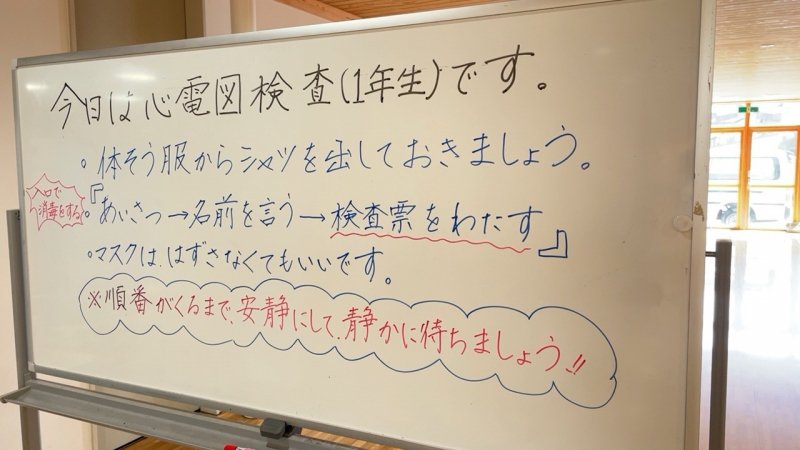 今日は心電図検査(1年生)です。
・体そう服からシャツを出しておきましょう。
入口で
消毒をする
・『あいさつ→名前を言う→検査票をわたす』
・マスクは、はずさなくてもいいです。
※順番がくるまで、安静にして、静かに待ちましょう!!